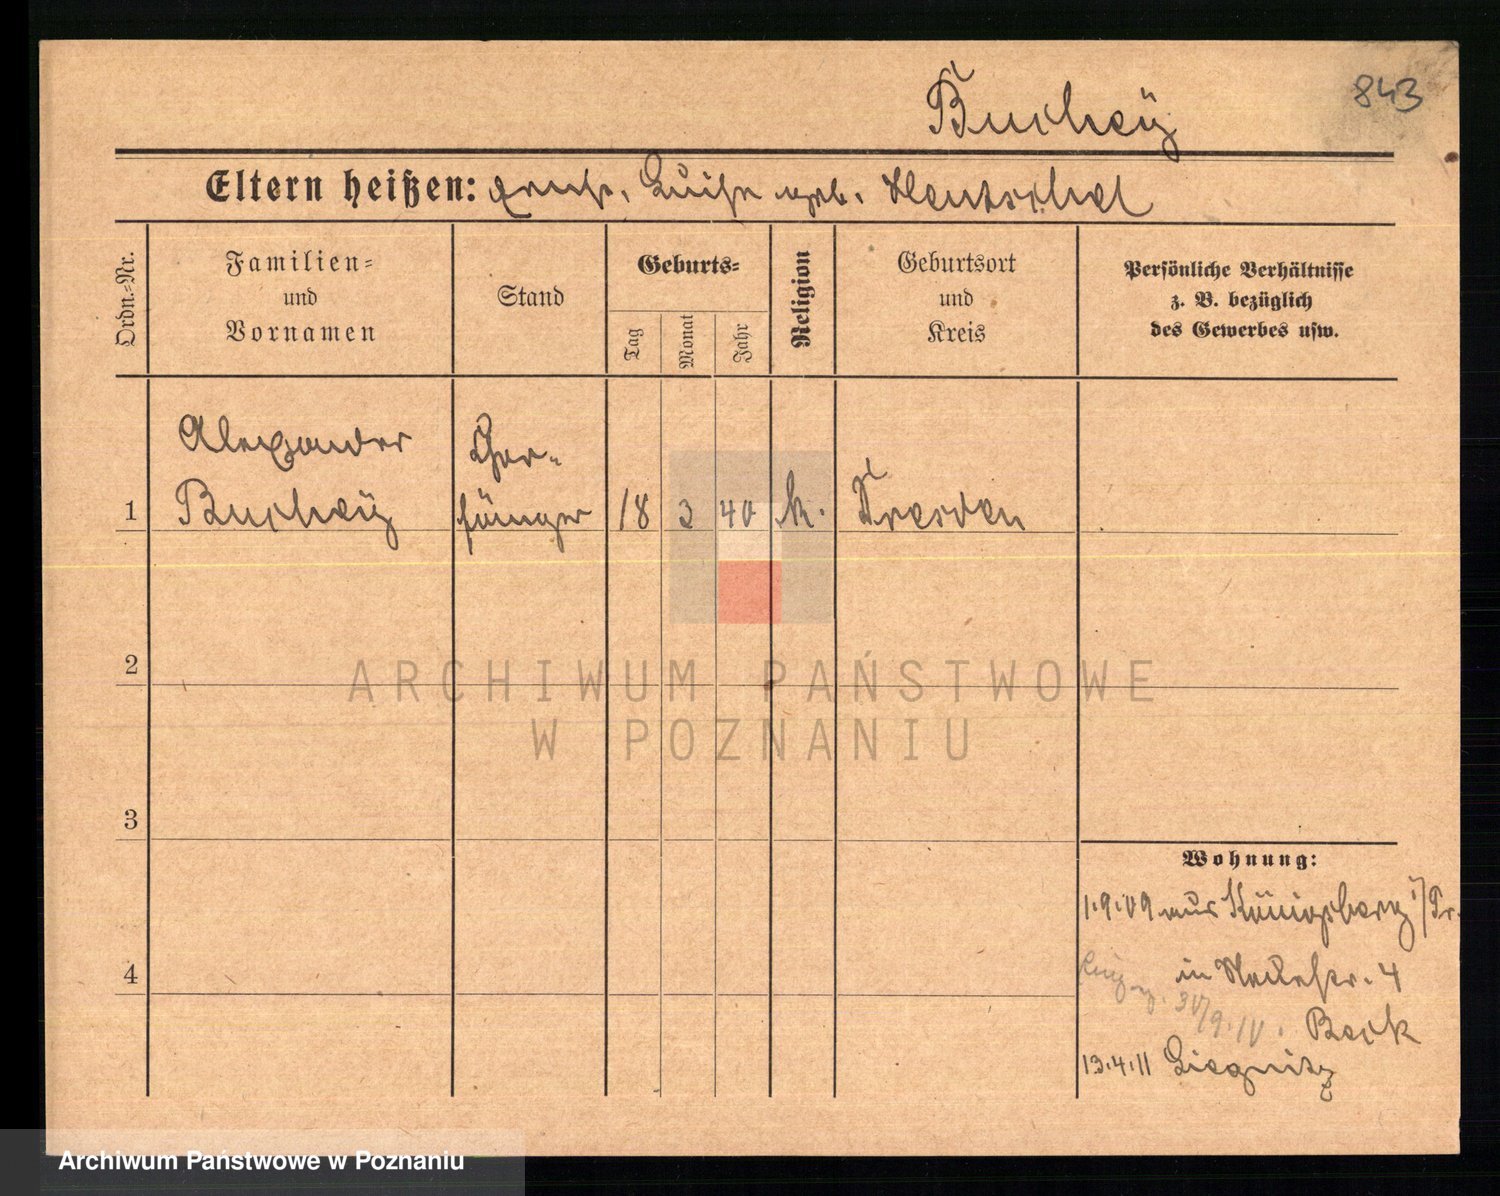 843
Bucheÿ
Eltern heißen: Ernst, Luise geb. Hentschel
Ordn.-Nr.
Familien-
und
Vornamen
Stand
Geburts-
Tag
Monat
Jahr
Religion
Geburtsort
und
Kreis
Persönliche Verhältnisse
z. B. bezüglich
des Gewerbes usw.
Alexander
Bucheÿ
Chor-
sänger
1
18
3
40
k.
Dresden
2
ARCHIWUM PAŃSTWOWE
W POZNANIU
3
Wohnung:
1.9.09 aus Königsberg i/Pr.
4
in Neuestr. 4
30/9.10.
Beck
13.4.11 Liegnitz
Archiwum Państwowe w Poznaniu